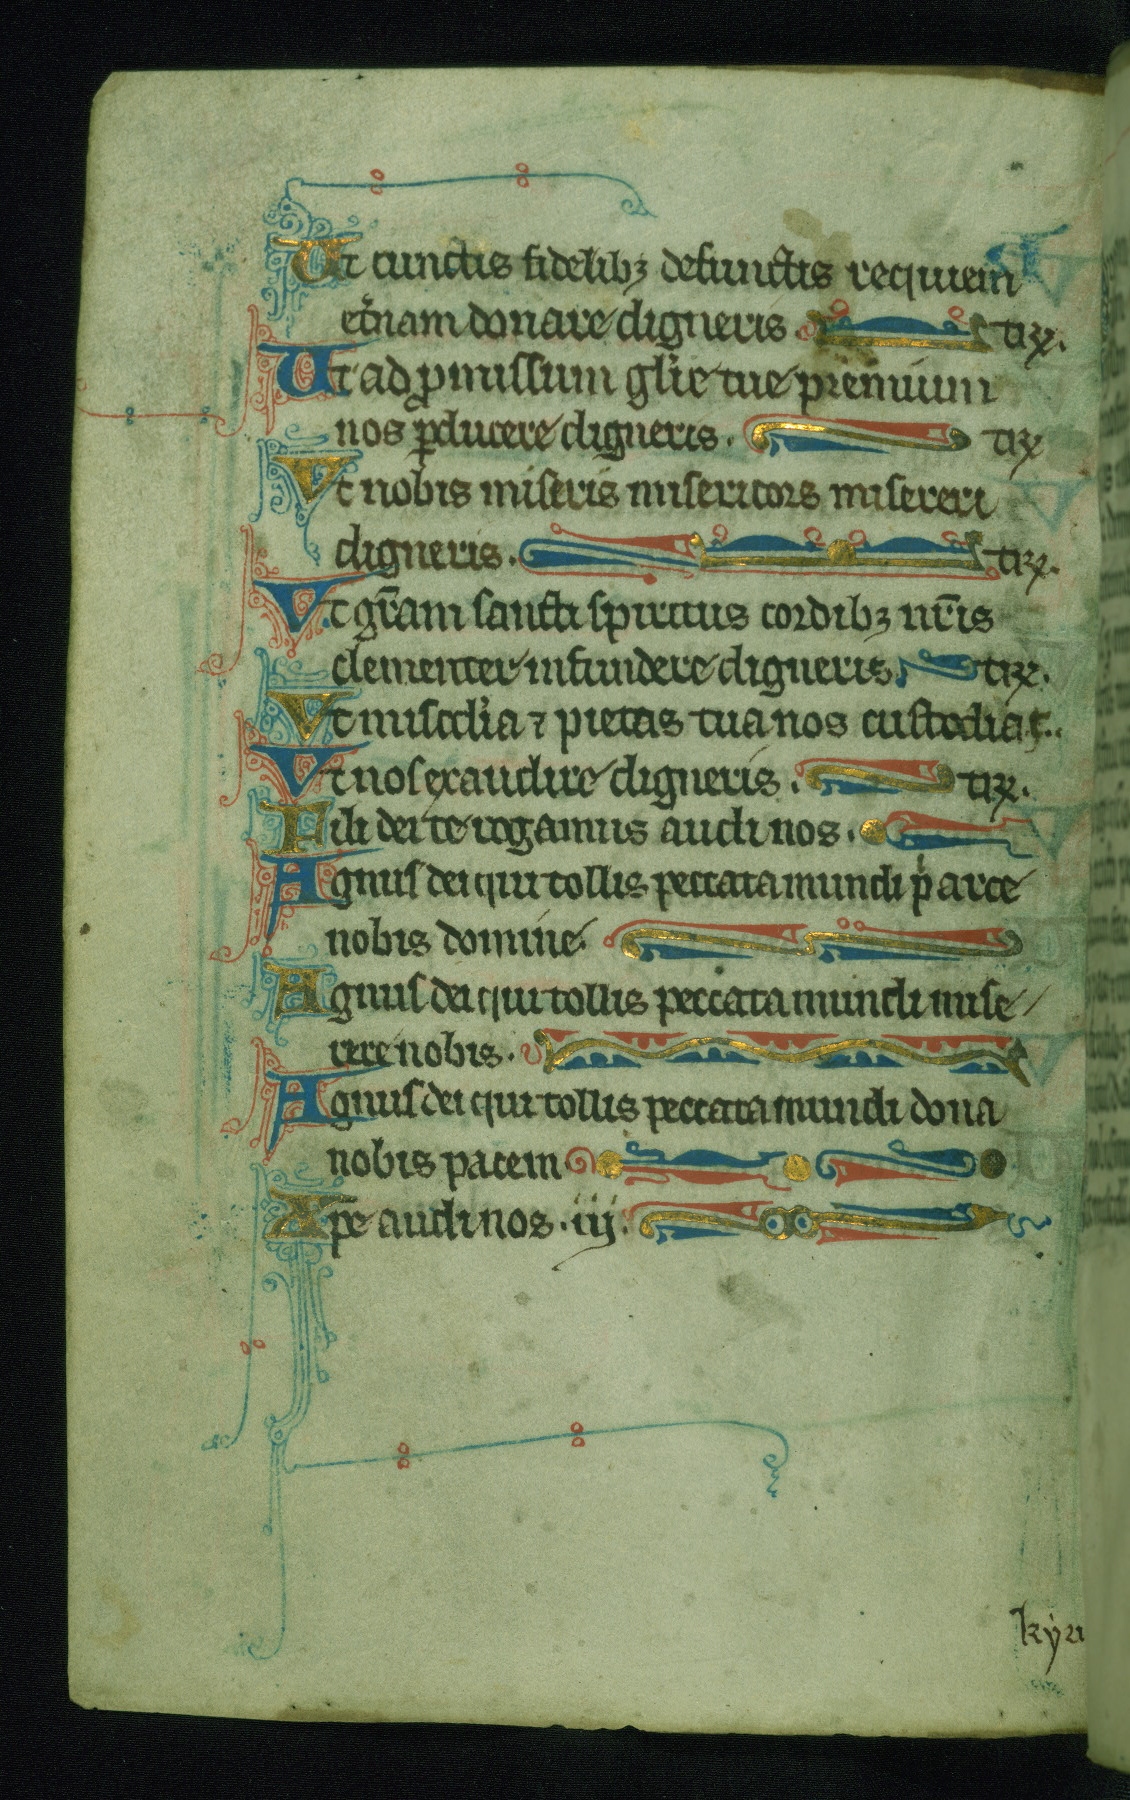 Ut cunctis fidelibꝫ defunctis requiem
et̾nam donare digneris tꝛꝝ.
Ut ad ꝓmissum gl̾ie tue premium
nos ꝑducere digneris. tꝛꝝ
Vt nobis miseris misericors misereri
digneris. tꝛꝝ.
Vt gr̄am sancti spiritus cordibꝫ nr̄is
clementer infundere digneris. tꝛꝝ.
Vt miscd̾ia ⁊ pietas tua nos custodiat..
Vt nos exaudire digneris. tꝛꝝ.
Fili dei te rogamus audi nos.
Agnus dei qui tollis peccata mundi parce
nobis domine.
Agnus dei qui tollis peccata mundi mise/
rere nobis.
Agnus dei qui tollis peccata mundi dona
nobis pacem
Xpe audi nos .iij.
kyri